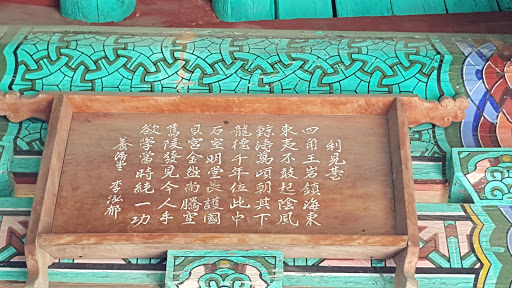 利見臺
四角王岩鎮海東
東夷不敢起陰風
鯨濤萬頃朝其下
龍德千年位此中
石室明堂長護國
貝宮金盤尚騰空
舊陵發見今人手
欲學當時純一功
養浩生 李泓郁